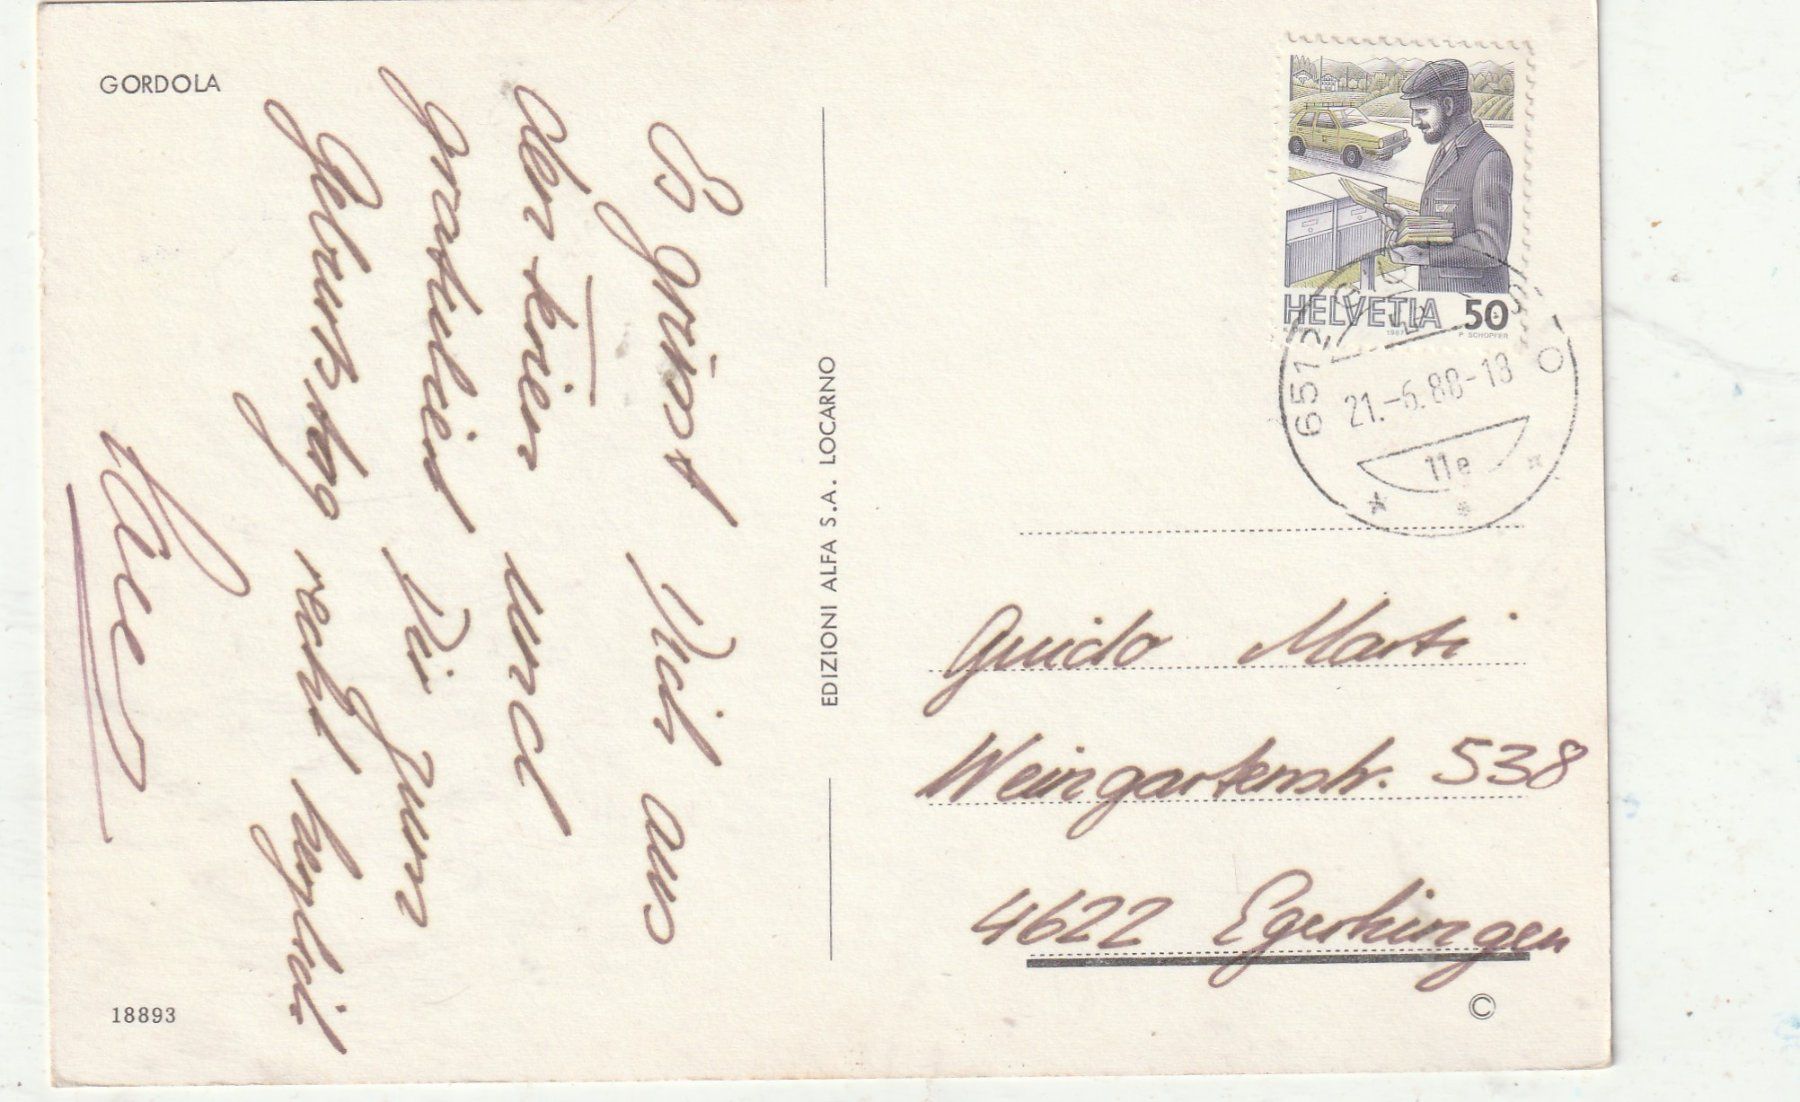 GORDOLA
Es grüsst Dich aus
den Ferien und
gratuliert Dir zum
Geburtstag recht herzlich
18893
EDIZIONI ALFA S.A. LOCARNO
HELVETIA 50
1987
P. SCHOPFER
651
21.-6.88-18
11e
Guido Marti
Weingartenstr. 538
4622 Egerkingen
©